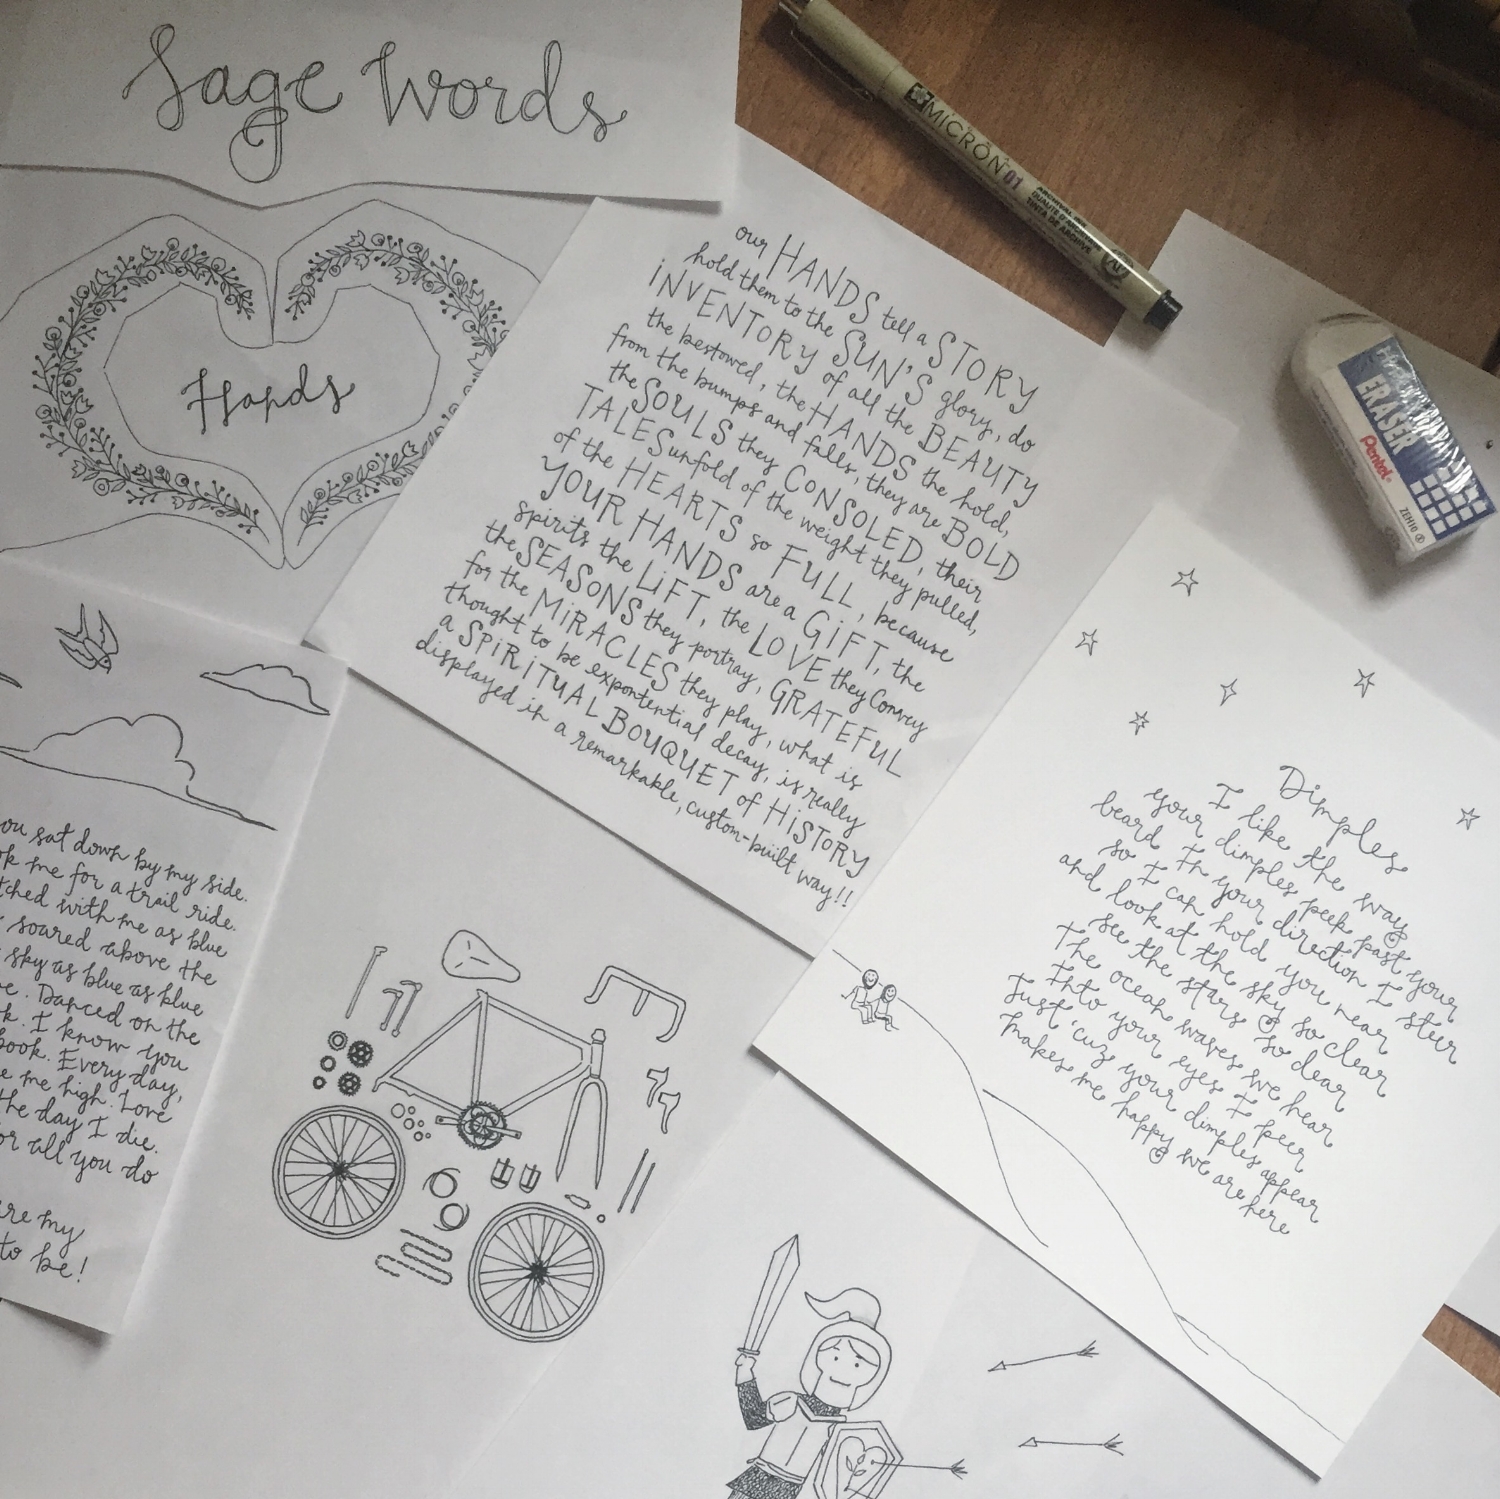 Sage Words
Hands
our HANDS tell a STORY
hold them to the SUN'S glory, do
iNVENTORY of all the BEAUTY
the bestowed, the HANDS the hold,
from the bumps and falls, they are BOLD
the SOULS they CONSOLED, their
TALES unfold of the weight they pulled,
of the HEARTS so FULL, because
YOUR HANDS are a GiFT, the
spirits the LiFT, the LOVE they convey
the SEASONS they portray, GRATEFUL
for the MiRACLES they play, what is
thought to be expontential decay, is really
a SPiRiTUAL BOUQUET of HiSTORY
displayed in a remarkable, custom-built way!!
MICRON 01
ARCHIVAL INK
TINTA DE ARCHIVE
ERASER
Pentel
ZEH10
Dimples
I like the way
your dimples peek past your
beard In your direction I steer
so I can hold you near
and look at the sky so clear
see the stars so dear
The ocean waves we hear
Into your eyes I peer
Just 'cuz your dimples appear
makes me happy we are here
ou sat down by my side.
ok me for a trail ride.
tched with me as blue
soared above the
sky as blue as blue
e. Danced on the
k. I know you
book. Every day,
e me high. Love
the day I die.
or all you do
re my
to be!